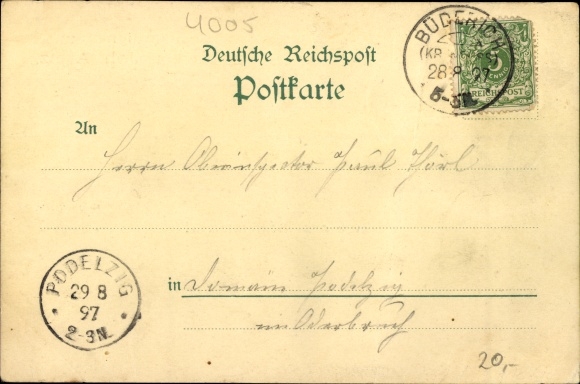 4005
Deutsche Reichspost
Postkarte
BÜDERICH
28 8 97
5-6N.
5
REICHSPOST
An
Herrn Oberinspector Paul Thörl
PODELZIG
29 8
97
2-3N.
in Domain Podelzig
im Oderbruch
20,-